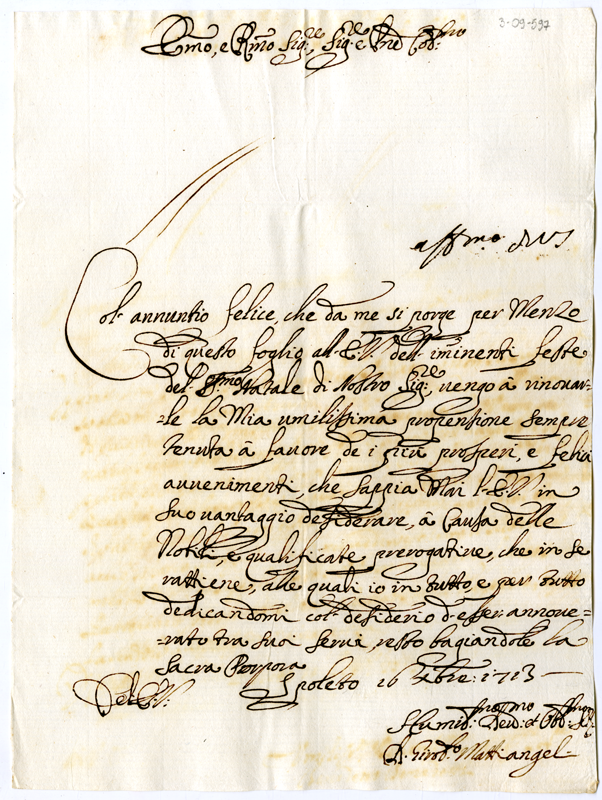 3-09-597
Emo, e Rmo Sigre, Sigre e Pne Colmo
affmo
Col' annuntio felice, che da me si porge per Menzo
di questo foglio all' E.V. dell' iminenti feste
del Smo Natale di Nostro Sigre, vengo à rinovar-
-le la Mia umilissima propensione sempre
tenuta à favore de i più prosperi, e felici
avvenimenti, che sappia Mai l' E.V. in
suo vantaggio desiderare, à Causa delle
Nobili, e qualificate prerogative, che in se
rattiene, alle quali io in tutto, e per tutto
dedicandomi col' desiderio d' esser annove-
-rato tra suoi servi, resto bagiandole la
Sacra Porpora
Spoleto 16 Xbre: 1713
Del' E.V.
Humil: Devmo et Obb:
Mattiangel